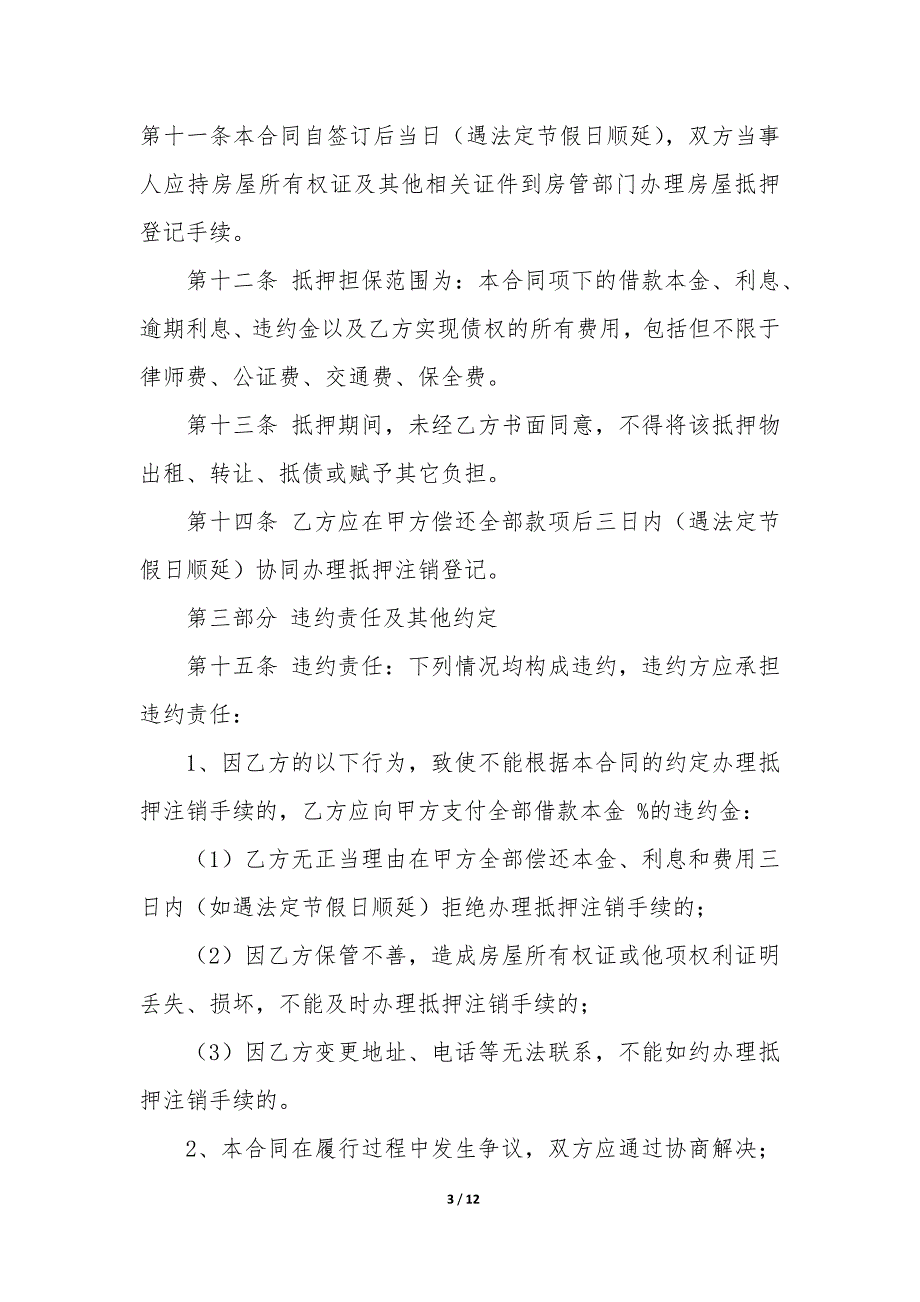 第十一条本合同自签订后当日（遇法定节假日顺延），双方当事
人应持房屋所有权证及其他相关证件到房管部门办理房屋抵押
登记手续。
第十二条 抵押担保范围为：本合同项下的借款本金、利息、
逾期利息、违约金以及乙方实现债权的所有费用，包括但不限于
律师费、公证费、交通费、保全费。
第十三条 抵押期间，未经乙方书面同意，不得将该抵押物
出租、转让、抵债或赋予其它负担。
第十四条 乙方应在甲方偿还全部款项后三日内（遇法定节
假日顺延）协同办理抵押注销登记。
第三部分 违约责任及其他约定
第十五条 违约责任：下列情况均构成违约，违约方应承担
违约责任：
1、因乙方的以下行为，致使不能根据本合同的约定办理抵
押注销手续的，乙方应向甲方支付全部借款本金 %的违约金：
（1）乙方无正当理由在甲方全部偿还本金、利息和费用三
日内（如遇法定节假日顺延）拒绝办理抵押注销手续的；
（2）因乙方保管不善，造成房屋所有权证或他项权利证明
丢失、损坏，不能及时办理抵押注销手续的；
（3）因乙方变更地址、电话等无法联系，不能如约办理抵
押注销手续的。
2、本合同在履行过程中发生争议，双方应通过协商解决；
3 / 12